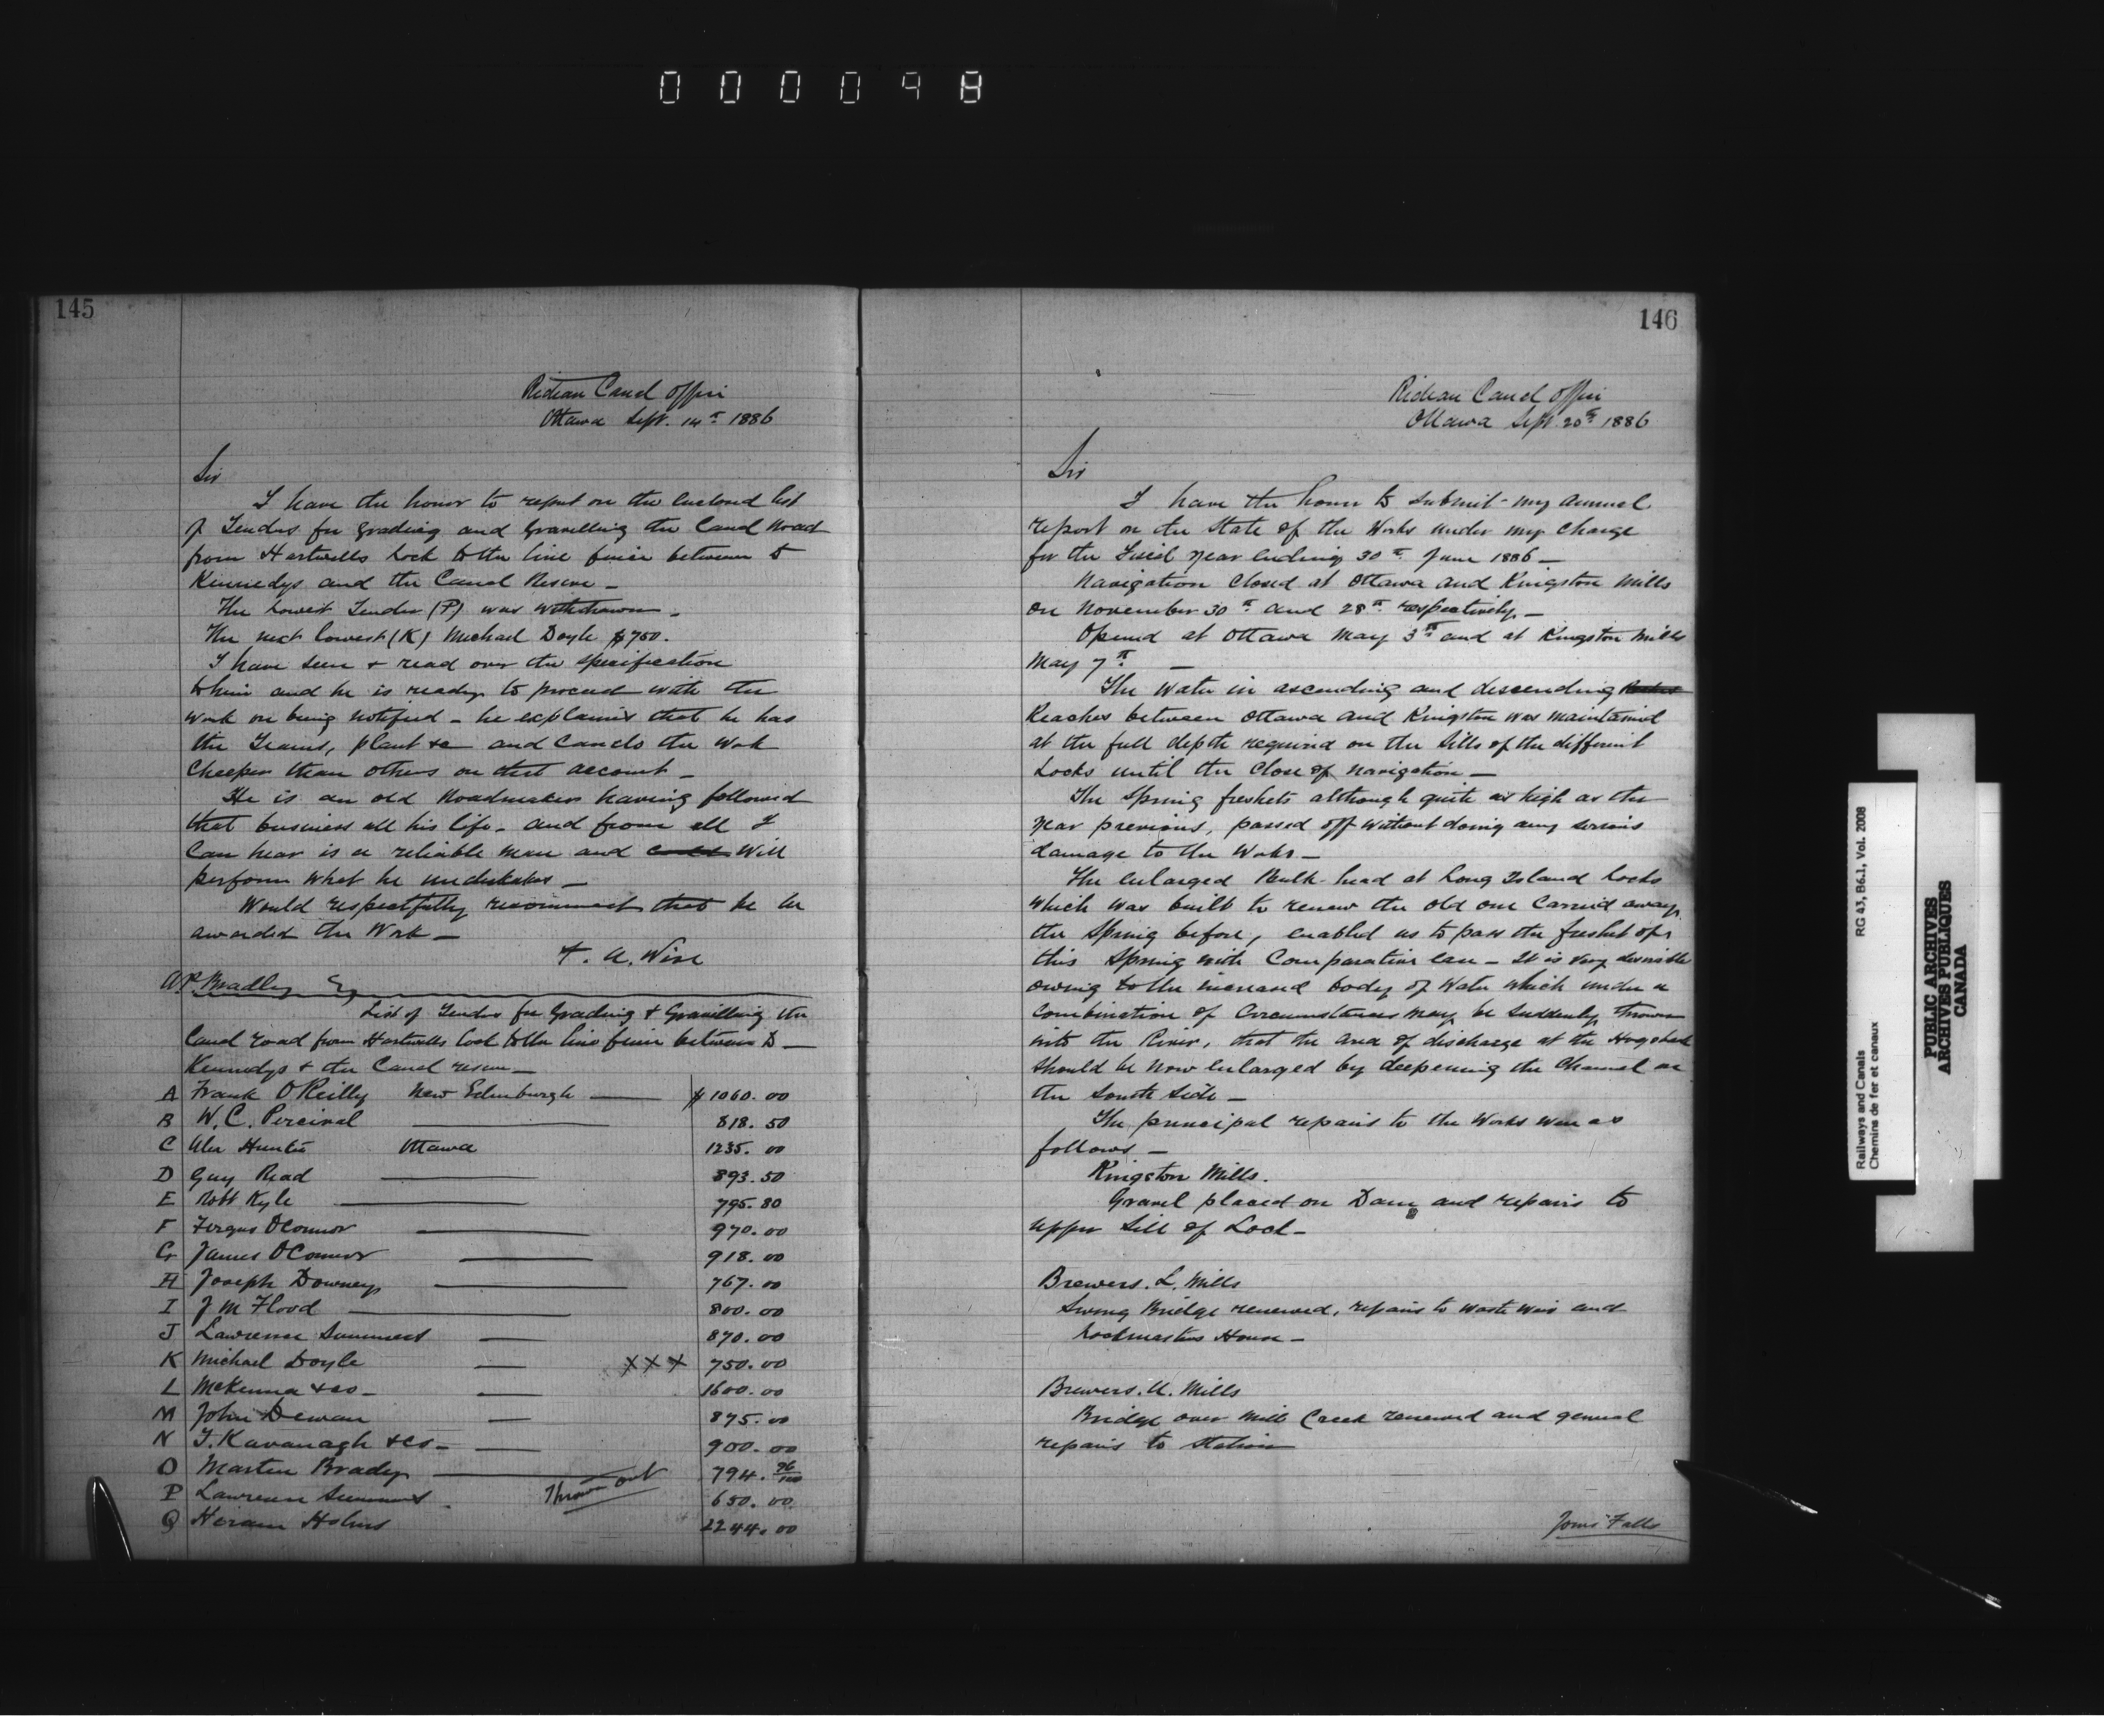 000098
145
Rideau Canal Office
Ottawa Sept. 14th 1886
Sir
I have the honor to report on the enclosed list
of Tenders for grading and Gravelling the Canal Road
from Hartwells Lock to the line fence between D
Kennedys and the Canal Reserve _
The lowest Tender (P) was withdrawn _
The next lowest (K) Michael Doyle $750.
I have seen & read over the specification
to him and he is ready to proceed with the
work on being notified _ he explains that he has
the Teams, plant &c and can do the work
Cheeper than others on that account _
He is an old Roadmaker having followed
that business all his life _ and from all I
Can hear is a reliable man and will
perform what he undertakes _
Would respectfully recommend that he be
awarded the Work _
F. A. Wise
A P. Bradley Esq
List of Tenders for Grading & Gravelling the
Canal road from Hartwells Lock to the line fence between D _
Kennedys & the Canal reserve _
A Frank O'Reilly New Edinburgh $1060.00
B W. C. Percival 818.50
C Alex Hunter Ottawa 1235.00
D Guy Read 893.50
E Robt Kyle 795.80
F Fergus O'Connor 970.00
G James O'Connor 918.00
H Joseph Downey 767.00
I J M Flood 800.00
J Lawrence Summers 870.00
K Michael Doyle XXX 750.00
L McKenna & Co _ 1600.00
M John Dewan 875.00
N T. Kavanagh & Co _ 900.00
O Marten Brady 794.96/100
P Lawrence Summers Thrown out 650.00
Q Hiram Holmes 2244.00
146
Rideau Canal Office
Ottawa Sept 20th 1886
Sir
I have the honor to submit my annual
report on the State of the Works under my Charge
for the Fiscal year ending 30th June 1886 _
Navigation Closed at Ottawa and Kingston Mills
on November 30th and 28th respectively _
Opened at Ottawa May 3rd and at Kingston Mills
May 7th _
The Water in ascending and descending
Reaches between Ottawa and Kingston was maintained
at the full depth required on the Sills of the different
Locks until the Close of navigation _
The Spring freshets although quite as high as the
year previous, passed off without doing any serious
damage to the Works _
The enlarged Bulk-head at Long Island Locks
which was built to renew the old one Carried away
the Spring before, enabled us to pass the freshet of
this Spring with Comparative ease _ It is very desirable
owing to the increased body of Water which under a
Combination of Circumstances may be suddenly thrown
into the River, that the area of discharge at the Hogsback
should be now enlarged by deepening the Channel on
the South Side _
The principal repairs to the Works were as
follows _
Kingston Mills.
Gravel placed on Dam and repairs to
upper Sill of Lock _
Brewers. L. Mills
Swing Bridge renewed, repairs to waste weir and
Lockmasters House _
Brewers. U. Mills
Bridge over Mill Creek renewed and general
repairs to Station
Jones Falls
RG 43, B6.1, Vol. 2008
Railways and Canals
Chemins de fer et canaux
PUBLIC ARCHIVES
ARCHIVES PUBLIQUES
CANADA